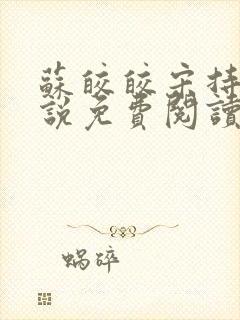 蘇皎皎宋持
說免費閱讀
蝸碎